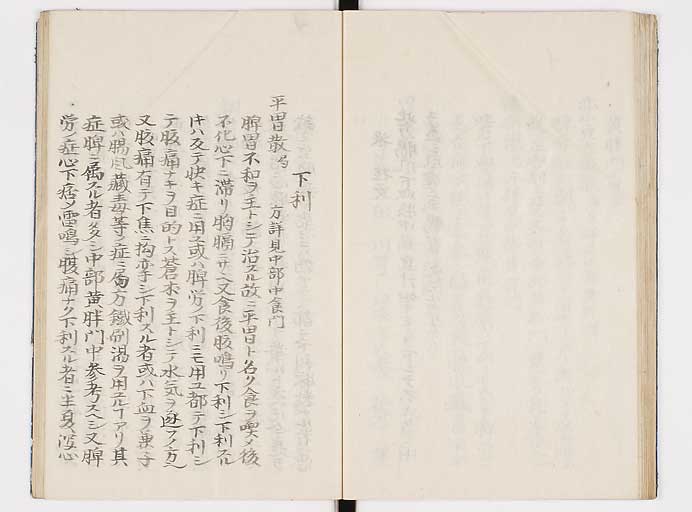 下利
平胃散 局 方詳見中部中食門
脾胃不和ヲ主トシテ治スル故ニ平胃ト名ク食ヲ喫メ後
不化心下ニ滞リ胸膈ニサヽヘ又食後腹鳴リ下利シ下利スル
キハ反テ快キ症ニ用ユ或ハ脾労ノ下利ニモ用ユ都テ下利シ
テ腹痛ナキヲ目的トス蒼朮ヲ主トシテ水気ヲ逐フノ方
又腹痛有テ下焦ニ拘挛シ下利スル者或ハ下血ヲ兼
或ハ腸風蔵毒等ノ症ニ局方銭湯ヲ用ユルアリ其
症脾ニ属スル者多シ中部黄胖門中参考スヘシ又脾
労ノ症心下痞メ雷鳴シ腹痛ナク下利スル者ニ半夏瀉心